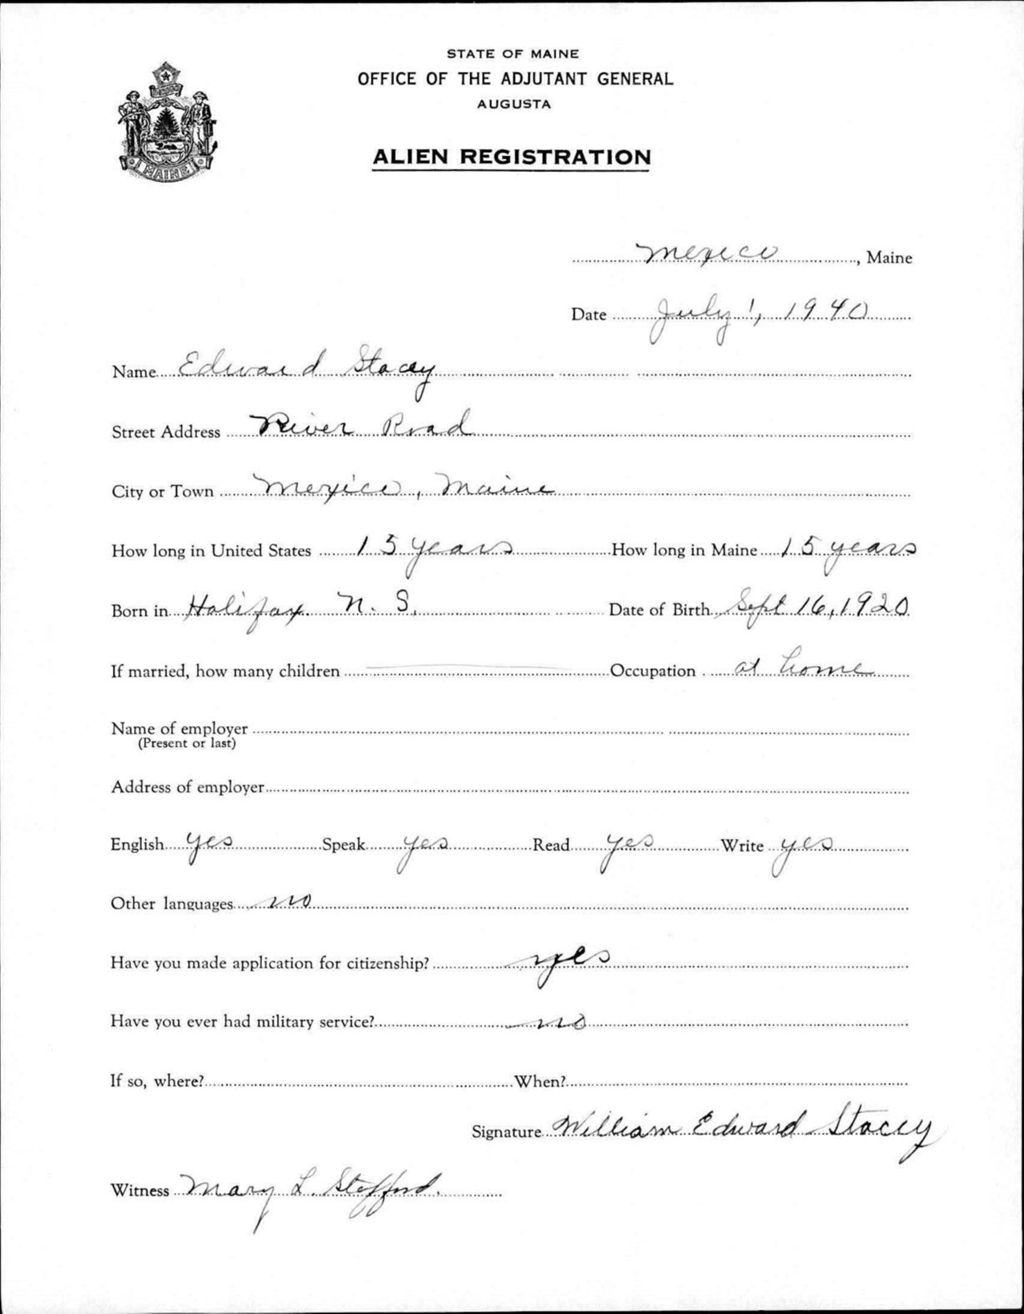 STATE OF MAINE
OFFICE OF THE ADJUTANT GENERAL
AUGUSTA
ALIEN REGISTRATION
MAINE
Mexico, Maine
Date July 1, 1940
Name Edward Stacey
Street Address River Road
City or Town Mexico, Maine
How long in United States 15 years How long in Maine 15 years
Born in Halifax N. S. Date of Birth Sept 16, 1920
If married, how many children Occupation at home
Name of employer
(Present or last)
Address of employer
English yes Speak yes Read yes Write yes
Other languages no
Have you made application for citizenship? yes
Have you ever had military service? no
If so, where? When?
Signature William Edward Stacey
Witness Mary L. Stafford.